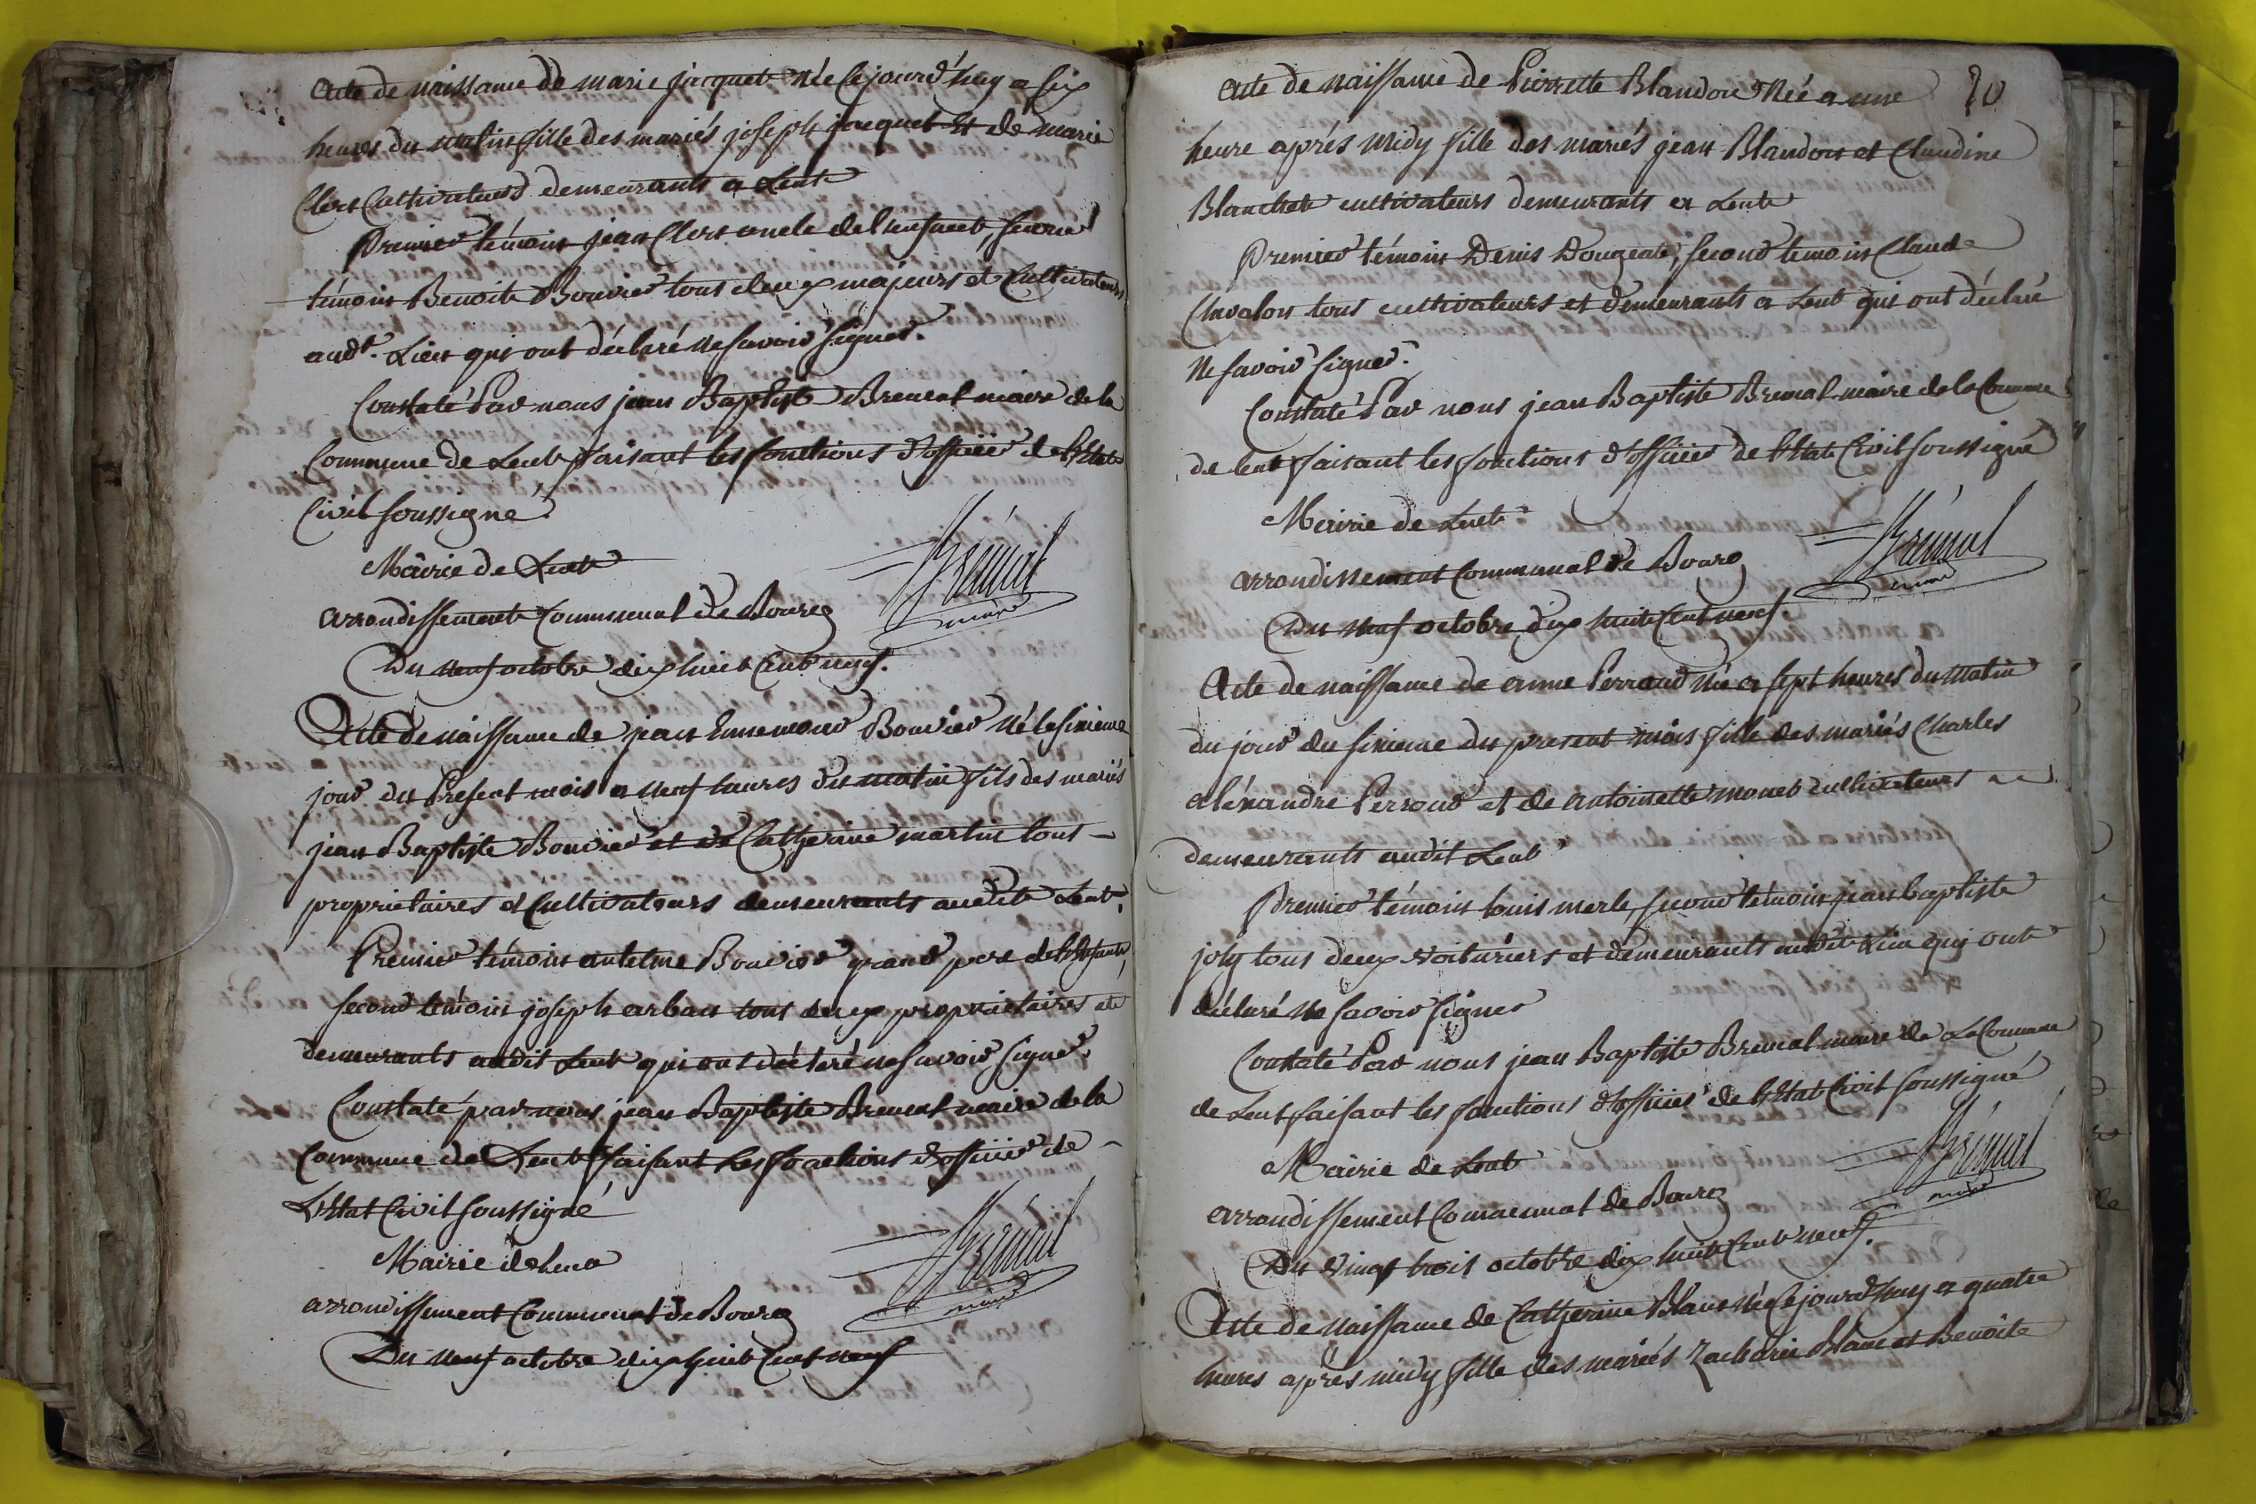 Acte de naissance de marie jacquet née cejourd'huy a six
heures du matin fille des mariés joseph jacquet Et de marie
Clerc Cultivateurs demeurants a Lent
Premier témoin jean Clerc oncle de l'enfant, second
témoin Benoit Bouvier tous deux majeurs et Cultivateurs
audt. Lieu qui ont déclaré ne savoir signer.
Constaté Par nous jean Baptiste Brenal maire de la
Commune de Lent faisant les fonctions d'officier de l'Etat
Civil soussigné
Mairie de Lent
arrondissement Communal de Bourg
maire
Du neuf octobre dix huit Cent neuf.
Acte de naissance de jean Bouvier Né le sixieme
jour du Present mois a neuf heures du matin fils des mariés
jean Baptiste Bouvier et de Catherine martin tous
proprietaires et Cultivateurs demeurants audit Lent.
Premier témoin antelme Bouvier grand pere de l'Enfant,
second témoin joseph arban tous deux proprietaires et
demeurants audit Lent qui ont déclaré ne savoir signer.
Constaté par nous jean Baptiste Brenal maire de la
Commune de Lent faisant les fonctions d'officier de
L'Etat Civil soussigné
Mairie de Lent
arrondissement Communal de Bourg
maire
Du neuf octobre dix huit Cent neuf
70
Acte de naissance de Pierrette Blandon Née a une
heure aprés midy fille des mariés jean Blandon et Claudine
Blanchet cultivateurs demeurants a Lent
Premier témoin Denis Dougeat, second temoin Claude
Chavalon tous cultivateurs et demeurants a Lent qui ont déclaré
ne savoir signer.
Constaté Par nous jean Baptiste Brenal maire de la Commune
de lent faisant les fonctions d'officier de l'Etat Civil soussigné
Mairie de Lent
arrondissement Communal de Bourg
maire
Du neuf octobre dix huit Cent neuf.
Acte de naissance de anne Perroud née a sept heures du matin
du jour du sixieme du present mois fille des mariés Charles
aléxandre Perroud et de antoinette monet cultivateurs
demeurants audit Lent
Premier témoin louis merle, second témoin jean baptiste
joly tous deux voituriers et demeurants audit Lieu qui ont
déclaré ne savoir signer
Constaté Par nous jean Baptiste Brenal maire de La Commune
de Lent faisant les fonctions d'officier de l'Etat Civil soussigné
Mairie de Lent
arrondissement Communal de Bourg
maire
Du vingt trois octobre dix huit Cent neuf.
Acte de naissance de Catherine Blanc née Cejourd'huy a quatre
heures aprés midy fille des mariés Zacharie Blanc et Benoite